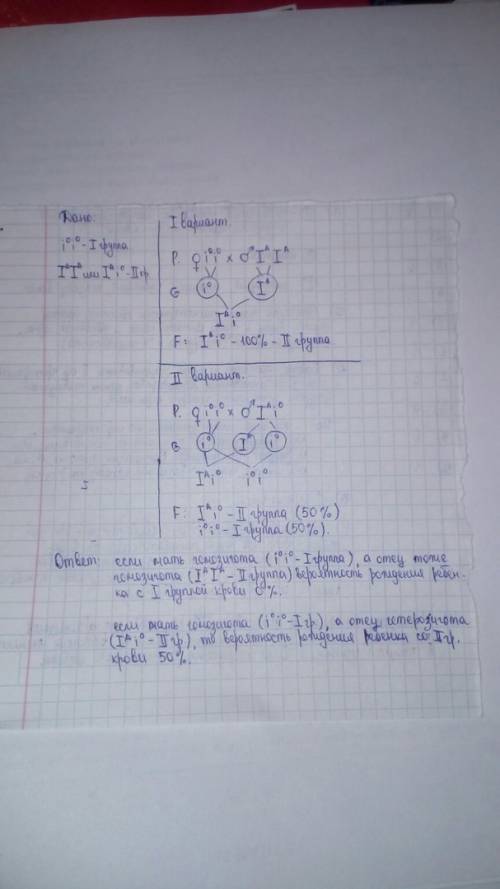 Дано:
i⁰i⁰ - I группа
IᴬIᴬ или Iᴬi⁰ - II гр
I вариант.
P. ♀ i⁰i⁰ × ♂ IᴬIᴬ
G i⁰ Iᴬ
Iᴬi⁰
F: Iᴬi⁰ - 100% - II группа
II вариант.
P. ♀ i⁰i⁰ × ♂ Iᴬi⁰
G i⁰ Iᴬ i⁰
Iᴬi⁰ i⁰i⁰
F: Iᴬi⁰ - II группа (50%)
i⁰i⁰ - I группа (50%).
Ответ: если мать гомозигота (i⁰i⁰ - I группа), а отец тоже
гомозигота (IᴬIᴬ - II группа) вероятность рождения ребен-
ка с I группой крови 0%.
если мать гомозигота (i⁰i⁰ - I гр), а отец гетерозигота
(Iᴬi⁰ - II гр), то вероятность рождения ребенка со II гр.
крови 50%.